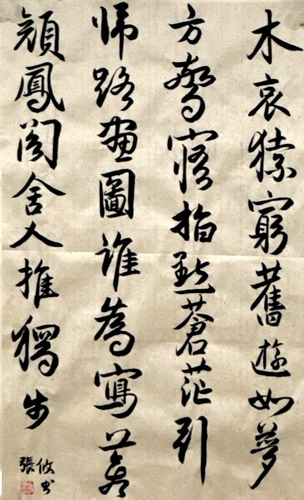 木哀猿窮舊遊如夢
方驚寤指點蒼茫引
歸路畫圖誰為寫蒼
顏鳳閣舍人推獨步
張攸書